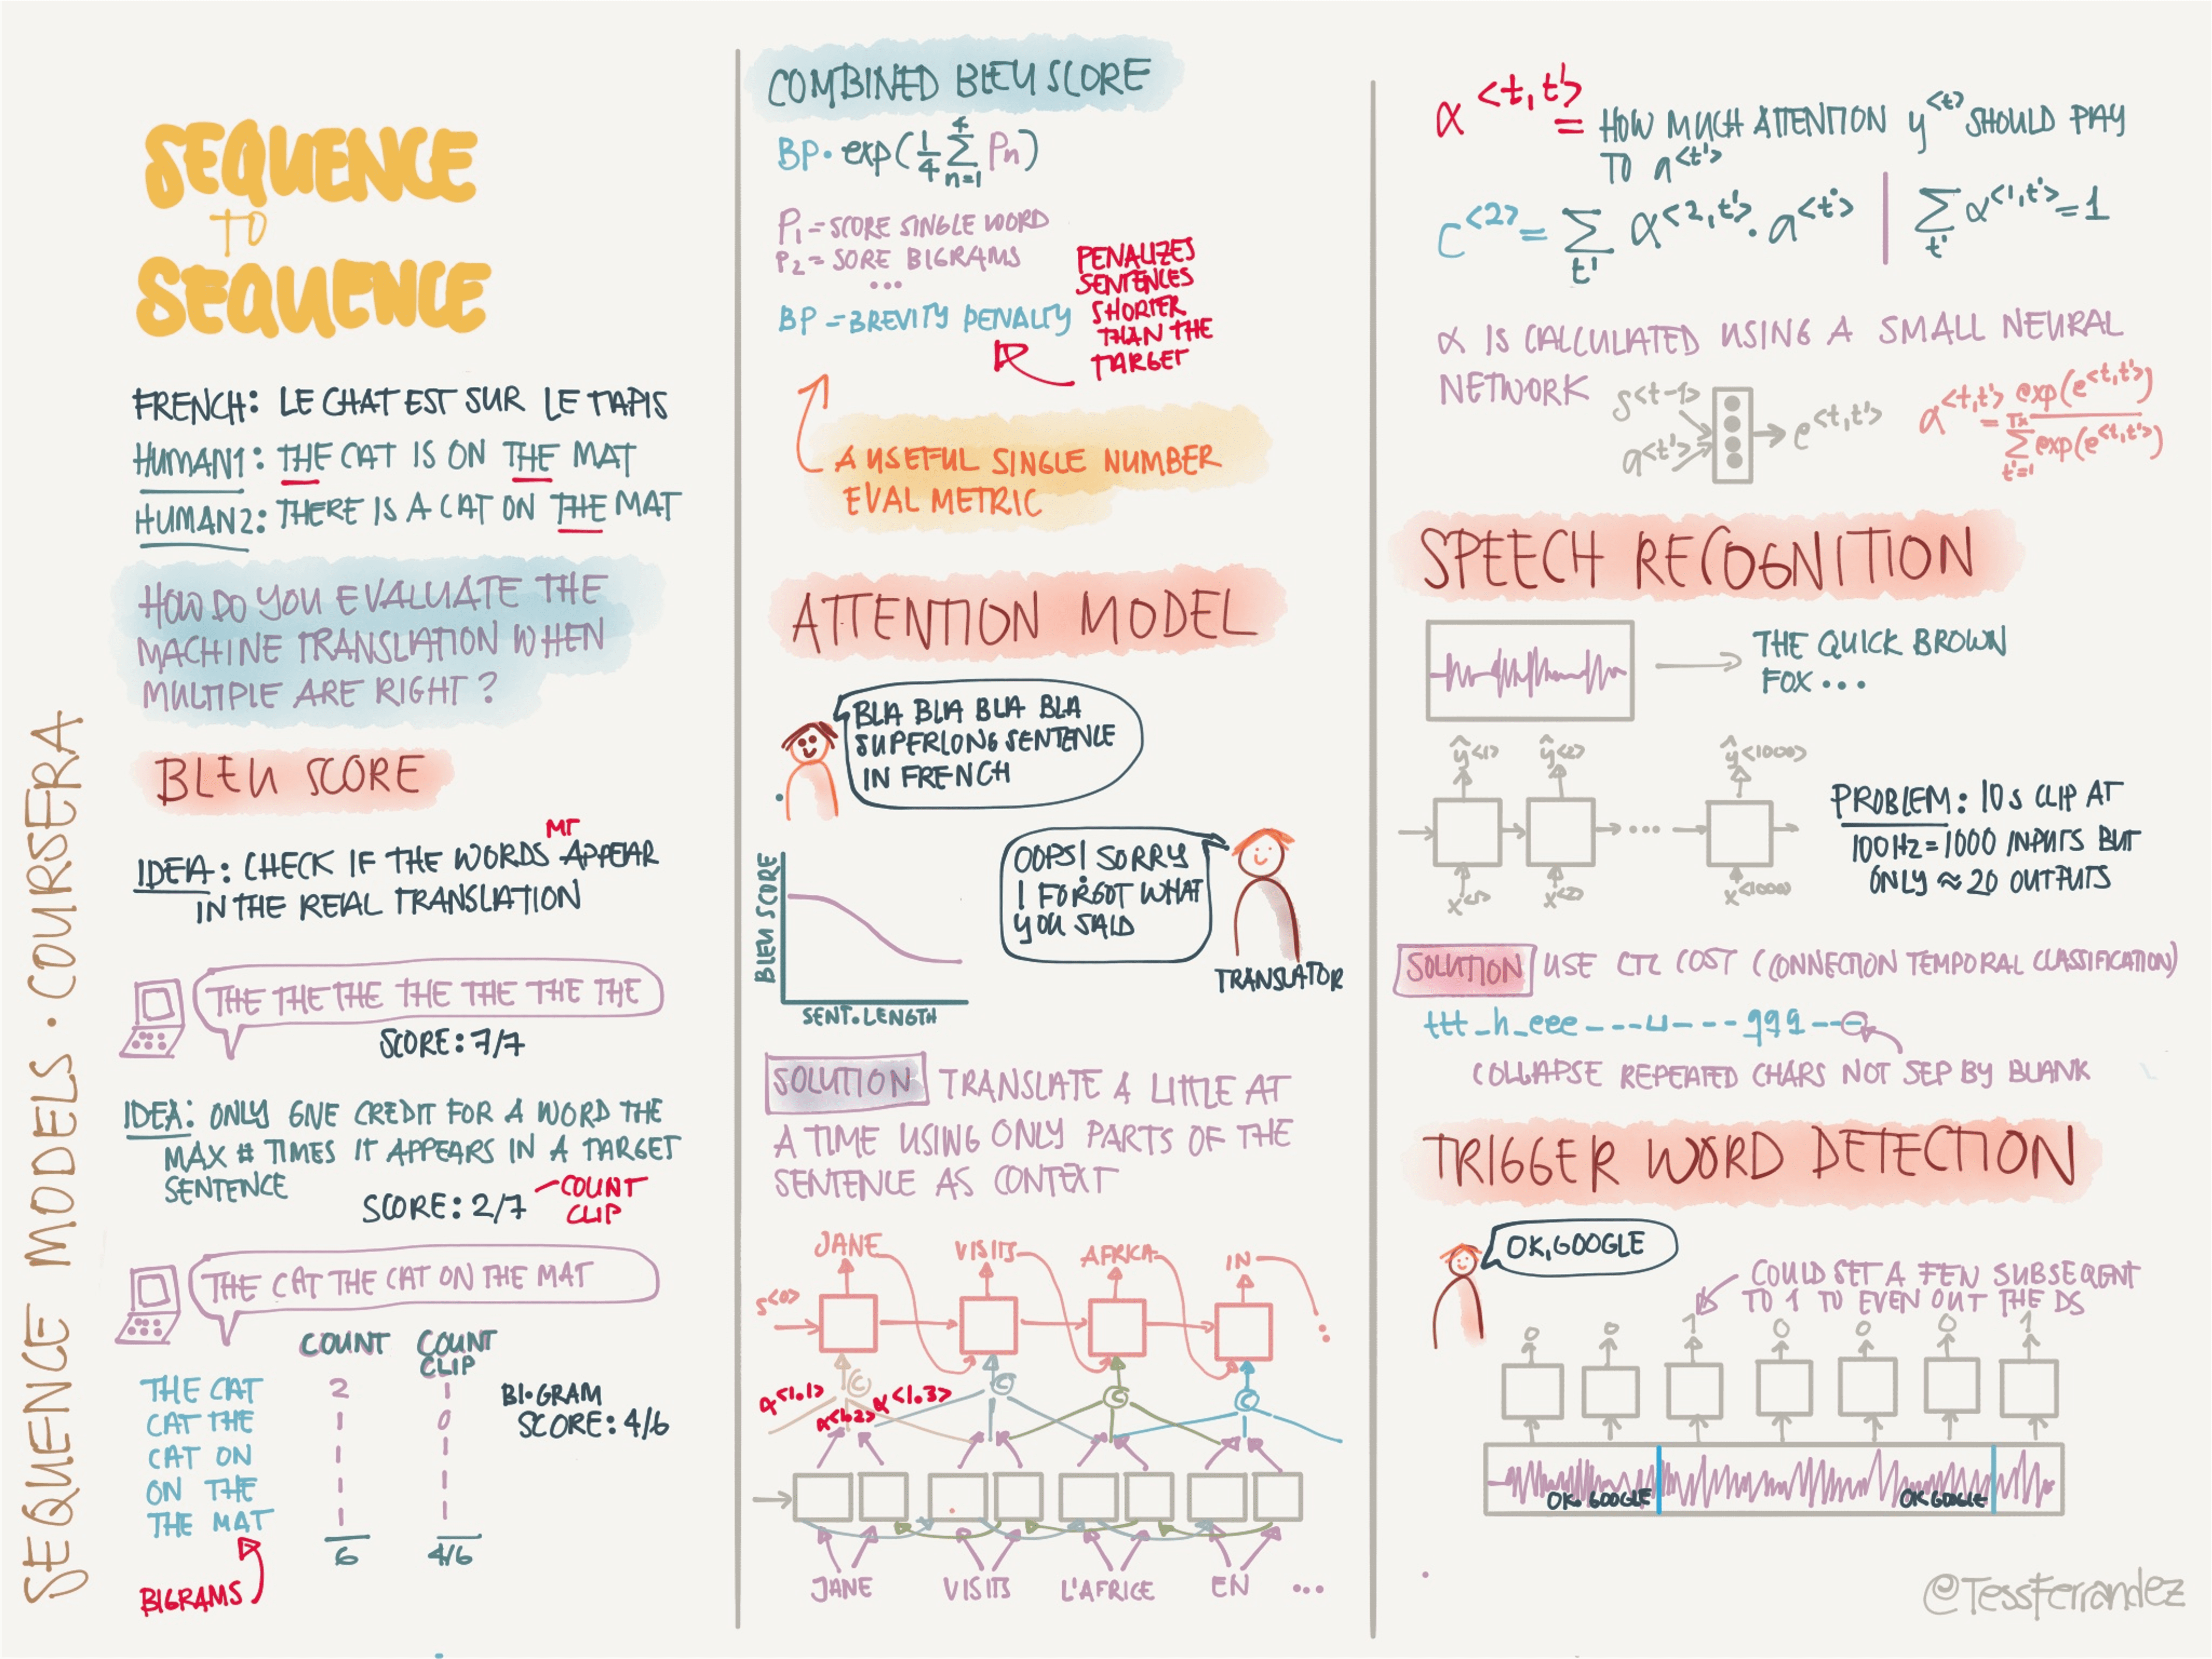 SEQUENCE MODELS · COURSERA
SEQUENCE
TO
SEQUENCE
FRENCH: LE CHAT EST SUR LE TAPIS
HUMAN1: THE CAT IS ON THE MAT
HUMAN2: THERE IS A CAT ON THE MAT
HOW DO YOU EVALUATE THE
MACHINE TRANSLATION WHEN
MULTIPLE ARE RIGHT?
BLEU SCORE
MT
IDEA: CHECK IF THE WORDS APPEAR
IN THE REAL TRANSLATION
THE THE THE THE THE THE THE
SCORE: 7/7
IDEA: ONLY GIVE CREDIT FOR A WORD THE
MAX # TIMES IT APPEARS IN A TARGET
SENTENCE
SCORE: 2/7
COUNT
CLIP
THE CAT THE CAT ON THE MAT
COUNT COUNT
CLIP
THE CAT 2 1
CAT THE 1 0
CAT ON 1 1
ON THE 1 1
THE MAT 1 1
6 4/6
BI·GRAM
SCORE: 4/6
BIGRAMS
COMBINED BLEU SCORE
BP · exp(1/4 4∑n=1 Pn)
P1 = SCORE SINGLE WORD
P2 = SORE BIGRAMS
...
BP = BREVITY PENALTY
PENALIZES
SENTENCES
SHORTER
THAN THE
TARGET
A USEFUL SINGLE NUMBER
EVAL METRIC
ATTENTION MODEL
BLA BLA BLA BLA
SUPERLONG SENTENCE
IN FRENCH
OOPS! SORRY
I FORGOT WHAT
YOU SAID
TRANSLATOR
BLEU SCORE
SENT. LENGTH
SOLUTION TRANSLATE A LITTLE AT
A TIME USING ONLY PARTS OF THE
SENTENCE AS CONTEXT
JANE VISITS AFRICA IN
S<0>
C C C C
α<1.1> α<1.2> α<1.3>
JANE VISITS L'AFRICE EN ...
α<t,t'> = HOW MUCH ATTENTION y<t> SHOULD PAY
TO a<t'>
C<2> = ∑t' α<2,t'> · a<t'> | ∑t' α<1,t'> = 1
α IS CALCULATED USING A SMALL NEURAL
NETWORK
S<t-1>
a<t'>
e<t,t'>
α<t,t'> = exp(e<t,t'>) / Tx∑t'=1 exp(e<t,t'>)
SPEECH RECOGNITION
THE QUICK BROWN
FOX ...
ŷ<1> ŷ<2> ŷ<1000>
...
x<1> x<2> x<1000>
PROBLEM: 10s CLIP AT
100Hz = 1000 INPUTS BUT
ONLY ≈ 20 OUTPUTS
SOLUTION USE CTC COST (CONNECTION TEMPORAL CLASSIFICATION)
ttt_h_eee---⊔---qqq---
COLLAPSE REPEATED CHARS NOT SEP BY BLANK
TRIGGER WORD DETECTION
OK, GOOGLE
COULD SET A FEW SUBSEQENT
TO 1 TO EVEN OUT THE DS
0 0 1 0 0 0 1
OK. GOOGLE OK GOOGLE
@TessFerrandez